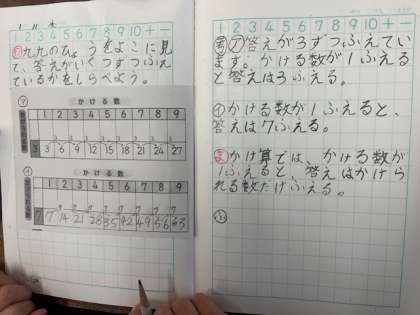 1 2 3 4 5 6 7 8 9 10 + −
九九のひょうをよこに見
て、答えがいくつずつふえ
ているかをしらべよう。
ア かける数
1 2 3 4 5 6 7 8 9
3 3 3 3 3 3 3 3
3 3 6 9 12 15 18 21 24 27
イ かける数
1 2 3 4 5 6 7 8 9
7 7 7 7 7 7 7 7
7 7 14 21 28 35 42 49 56 63
1 2 3 4 5 6 7 8 9 10 + −
ア 答えが3ずつふえてい
ます。かける数が1ふえる
と答えは3ふえる。
イ かける数が1ふえると、
答えは7ふえる。
ま かけ算では、かける数が
1ふえると、答えはかけら
れる数だけふえる。
ふ